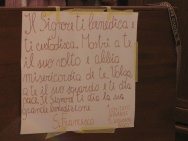 Il Signore ti benedica e
ti custodisca. Mostri a te
il suo volto e abbia
misericordia di te. Volga
a te il suo sguardo e ti dia
pace. Il Signore ti dia la sua
grande benedizione
S. Francesco